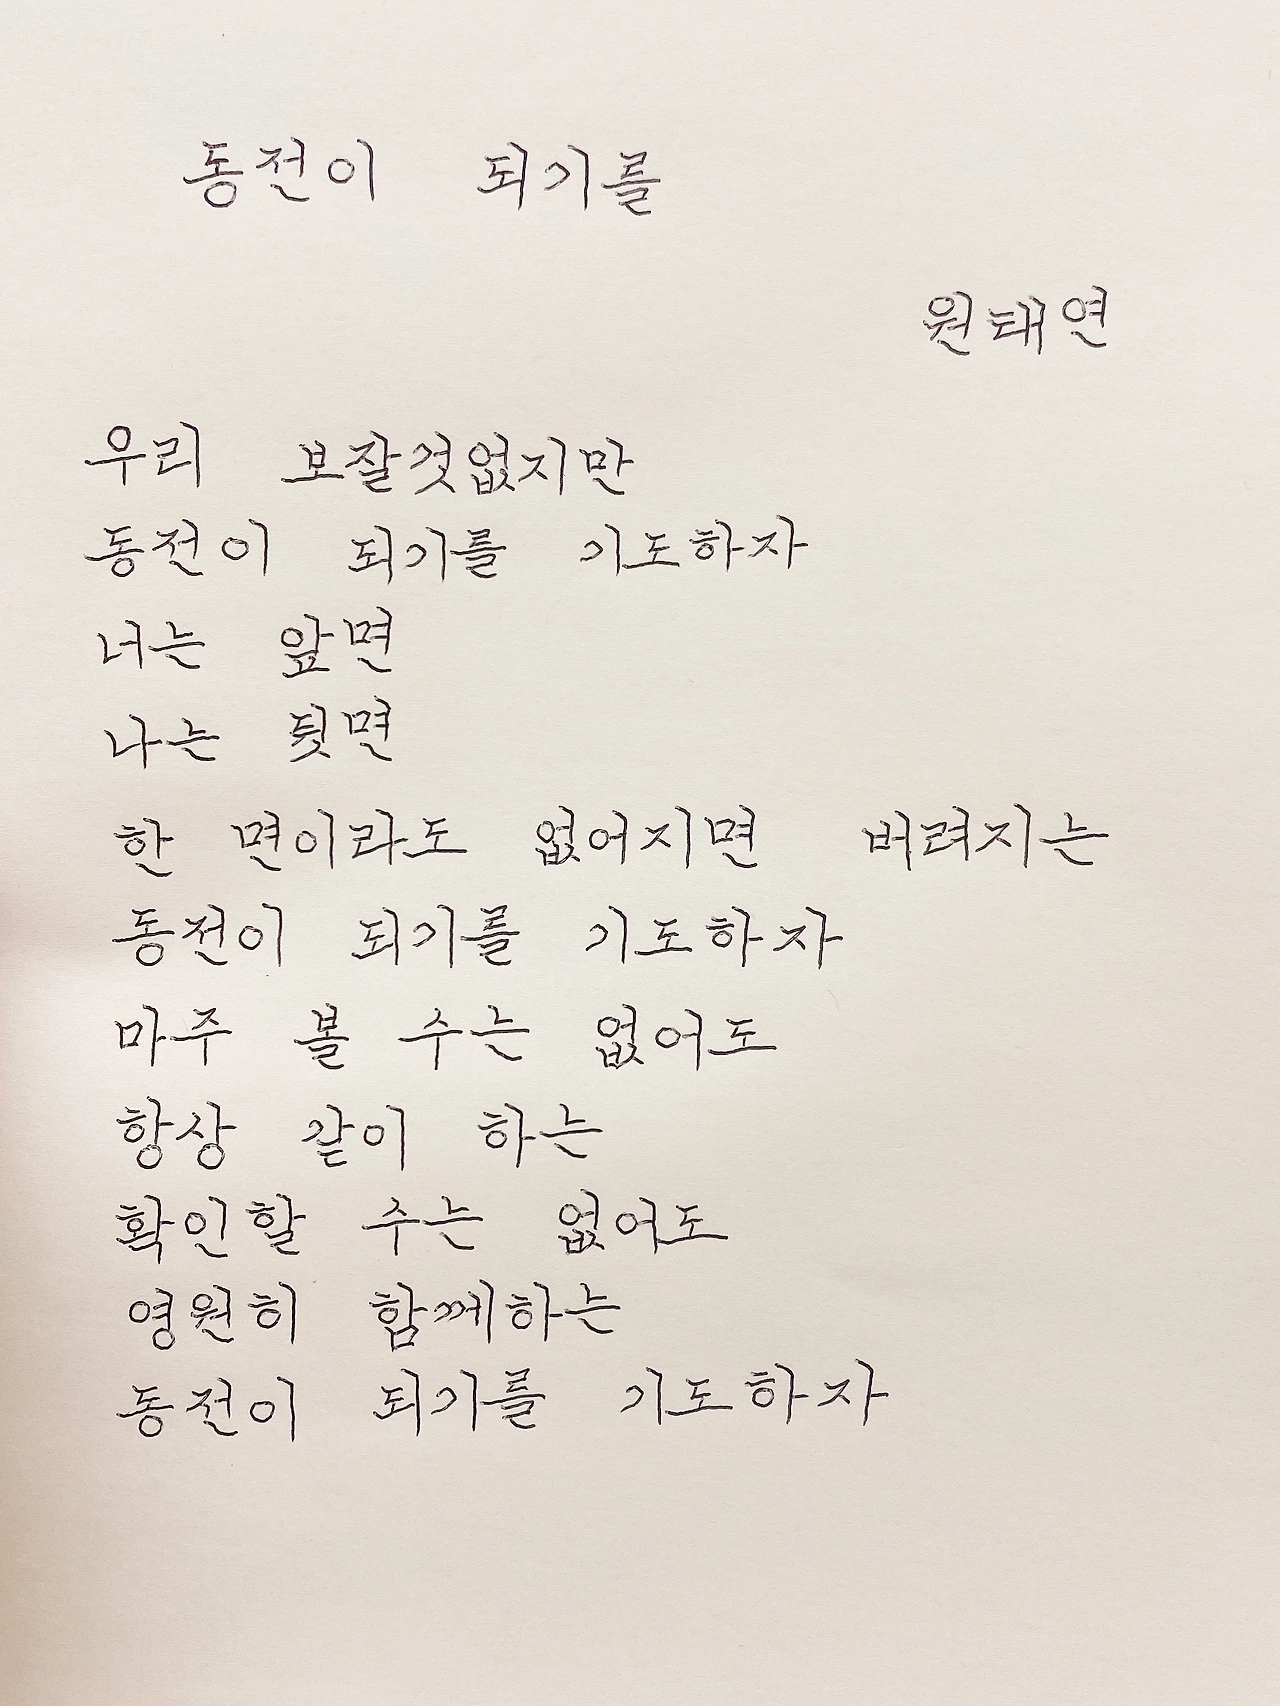 동전이 되기를
원태연
우리 보잘것없지만
동전이 되기를 기도하자
너는 앞면
나는 뒷면
한 면이라도 없어지면 버려지는
동전이 되기를 기도하자
마주 볼 수는 없어도
항상 같이 하는
확인할 수는 없어도
영원히 함께하는
동전이 되기를 기도하자